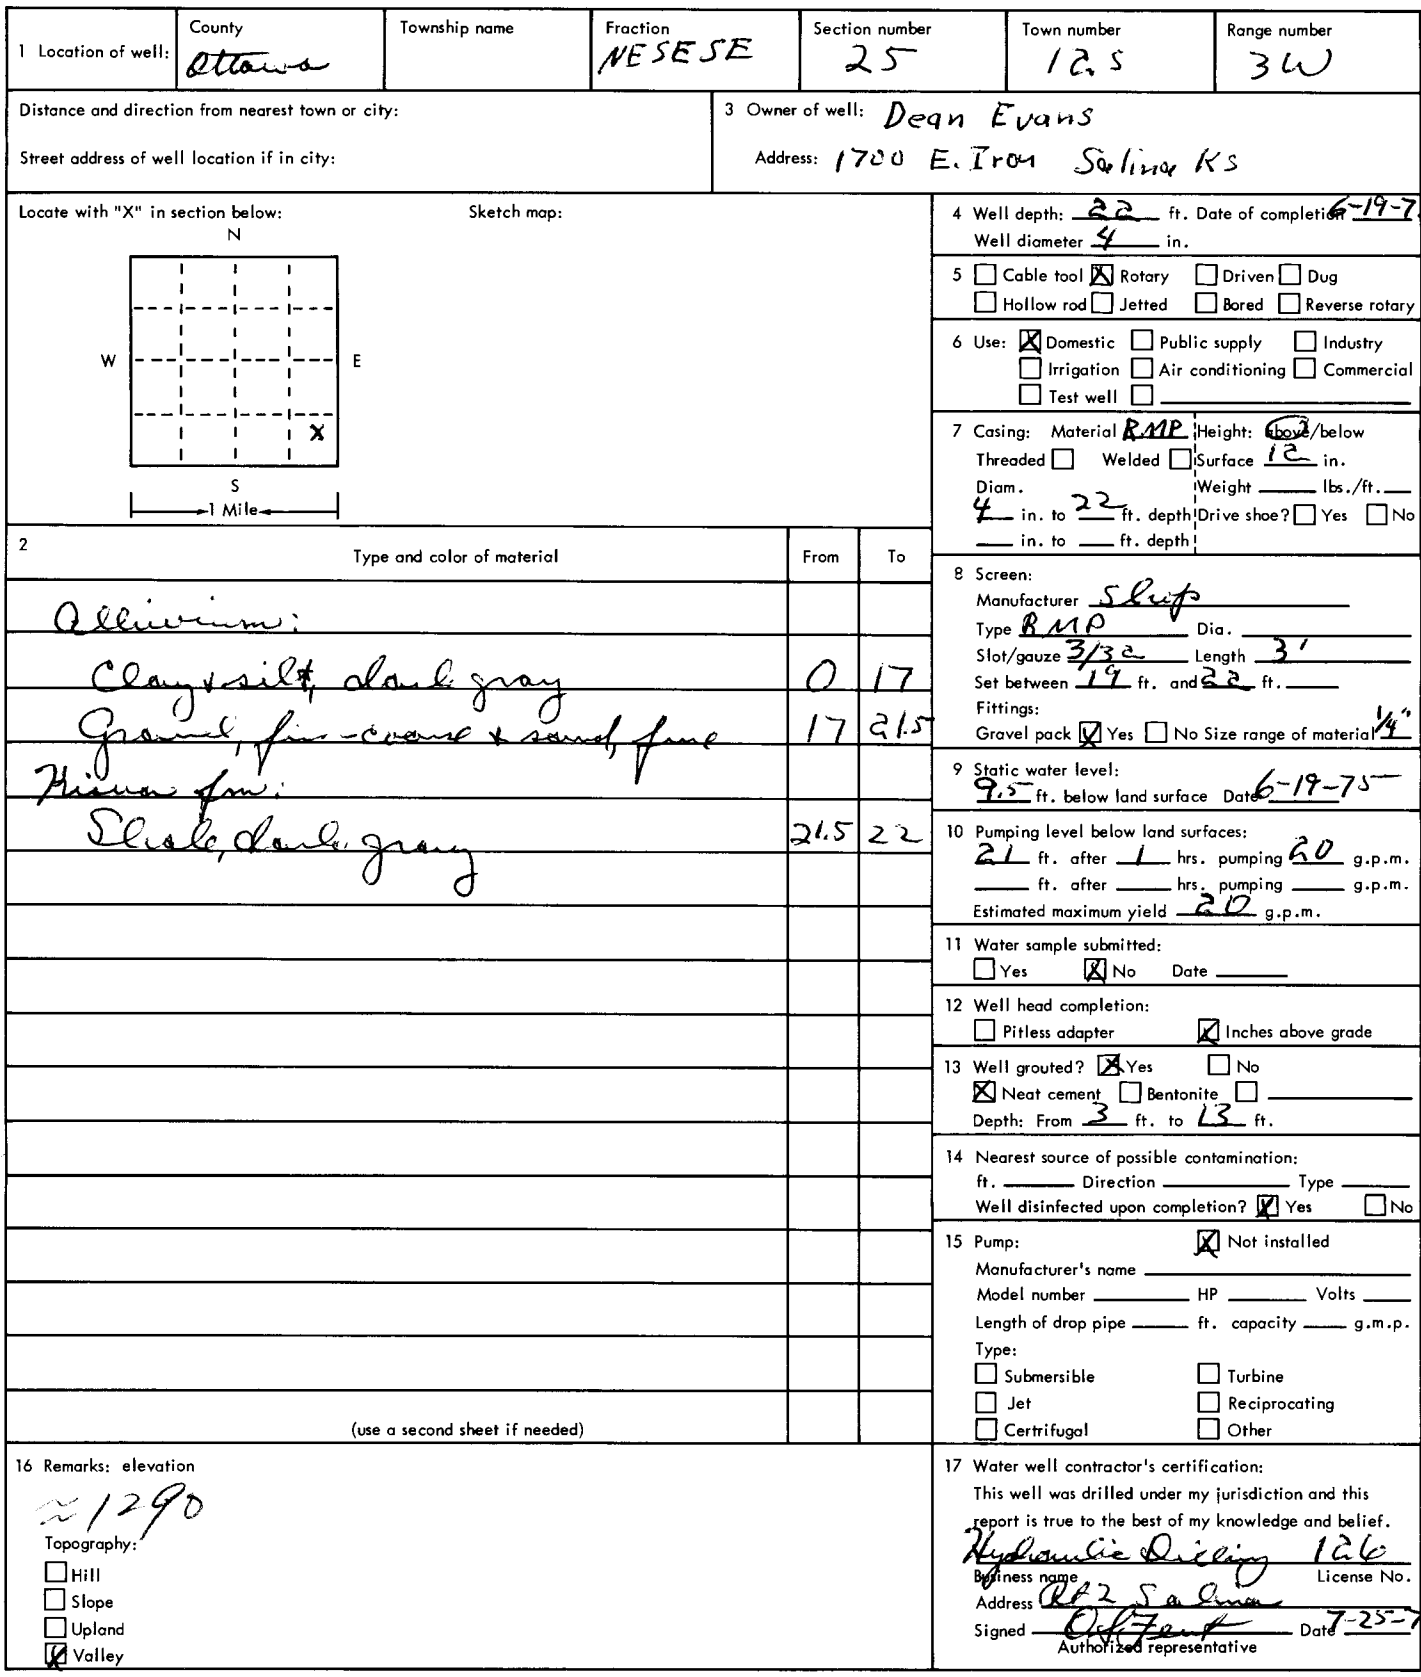 1 Location of well: County Ottawa Township name Fraction NESESE Section number 25 Town number 12 S Range number 3W
Distance and direction from nearest town or city:
Street address of well location if in city:
3 Owner of well: Dean Evans
Address: 1700 E. Iron Salina KS
Locate with "X" in section below: Sketch map:
N
W E
X
S
1 Mile
2 Type and color of material From To
Alluvium:
Clay & silt, dark gray 0 17
Gravel, fine-coarse & sand, fine 17 21.5
Kiowa fm:
Shale, dark gray 21.5 22
(use a second sheet if needed)
4 Well depth: 22 ft. Date of completion 6-19-7
Well diameter 4 in.
5 Cable tool X Rotary Driven Dug
Hollow rod Jetted Bored Reverse rotary
6 Use: X Domestic Public supply Industry
Irrigation Air conditioning Commercial
Test well
7 Casing: Material RMP Height: above/below
Threaded Welded Surface 12 in.
Diam. Weight lbs./ft.
4 in. to 22 ft. depth Drive shoe? Yes No
in. to ft. depth
8 Screen:
Manufacturer
Type RMP Dia.
Slot/gauze 3/32 Length 3'
Set between 19 ft. and 22 ft.
Fittings:
Gravel pack X Yes No Size range of material 1/4"
9 Static water level:
9.5 ft. below land surface Date 6-19-75
10 Pumping level below land surfaces:
21 ft. after 1 hrs. pumping 20 g.p.m.
ft. after hrs. pumping g.p.m.
Estimated maximum yield 20 g.p.m.
11 Water sample submitted:
Yes X No Date
12 Well head completion:
Pitless adapter X Inches above grade
13 Well grouted? X Yes No
X Neat cement Bentonite
Depth: From 3 ft. to 13 ft.
14 Nearest source of possible contamination:
ft. Direction Type
Well disinfected upon completion? X Yes No
15 Pump: X Not installed
Manufacturer's name
Model number HP Volts
Length of drop pipe ft. capacity g.m.p.
Type:
Submersible Turbine
Jet Reciprocating
Certrifugal Other
16 Remarks: elevation
≈1290
Topography:
Hill
Slope
Upland
X Valley
17 Water well contractor's certification:
This well was drilled under my jurisdiction and this
report is true to the best of my knowledge and belief.
Hydraulic Drilling 126
Business name License No.
Address Rt 2 Salina
Signed Date 7-25-7
Authorized representative